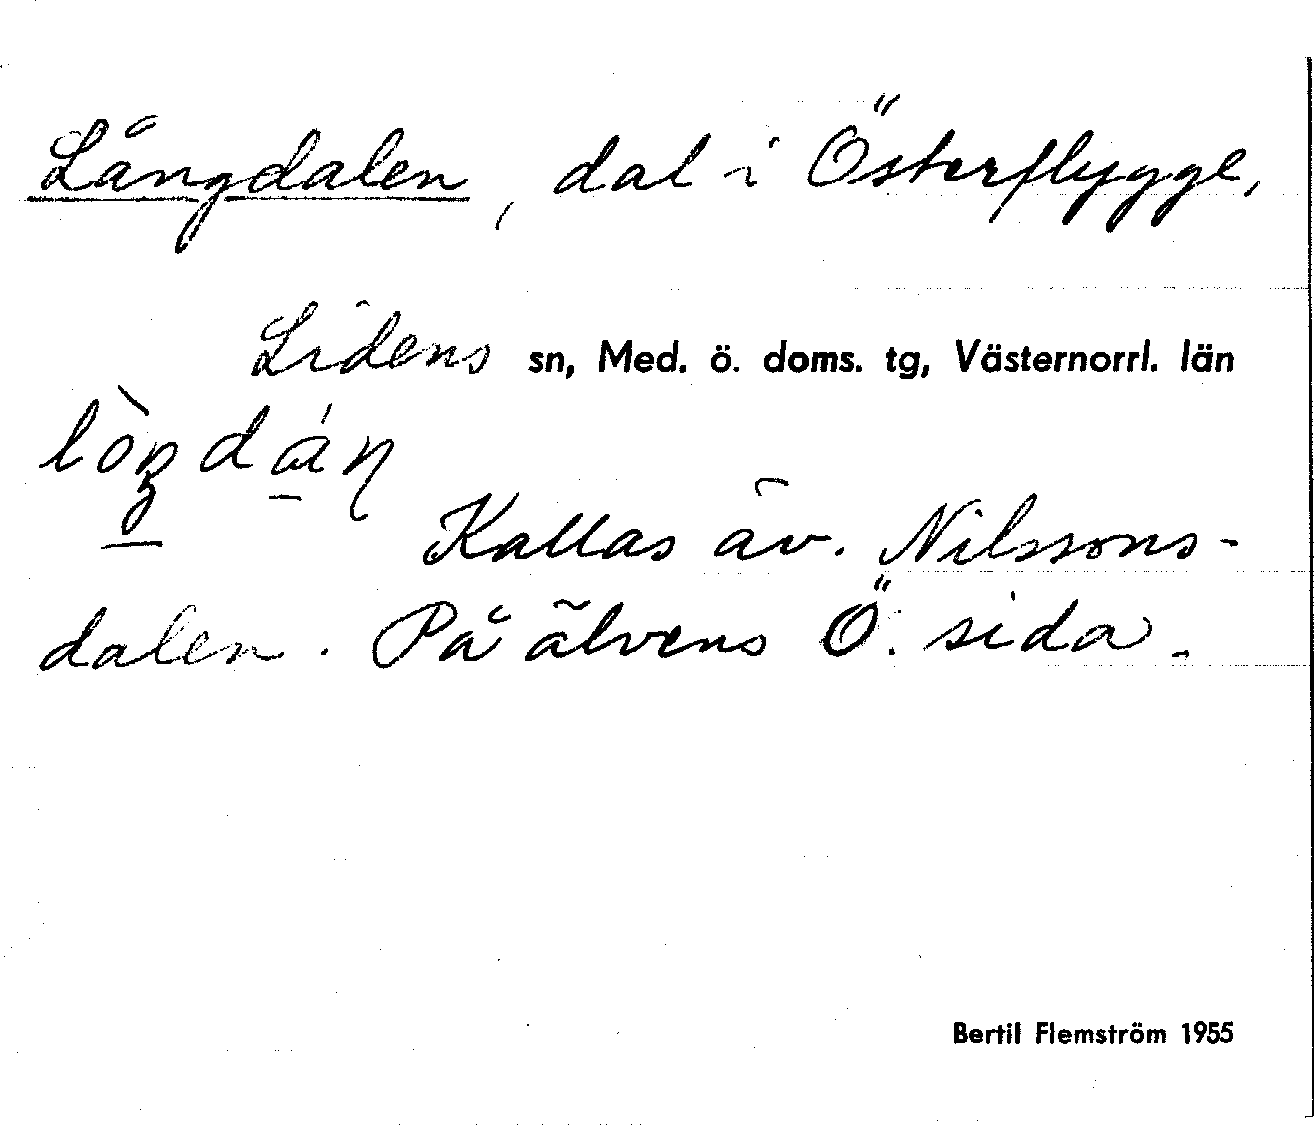 Långdalen, dal i Österflygge,
Lidens sn, Med. ö. doms. tg, Västernorrl. län
lòŋdáɳ
Kallas äv. Nilssons-
dalen. På älvens Ö. sida.
Bertil Flemström 1955